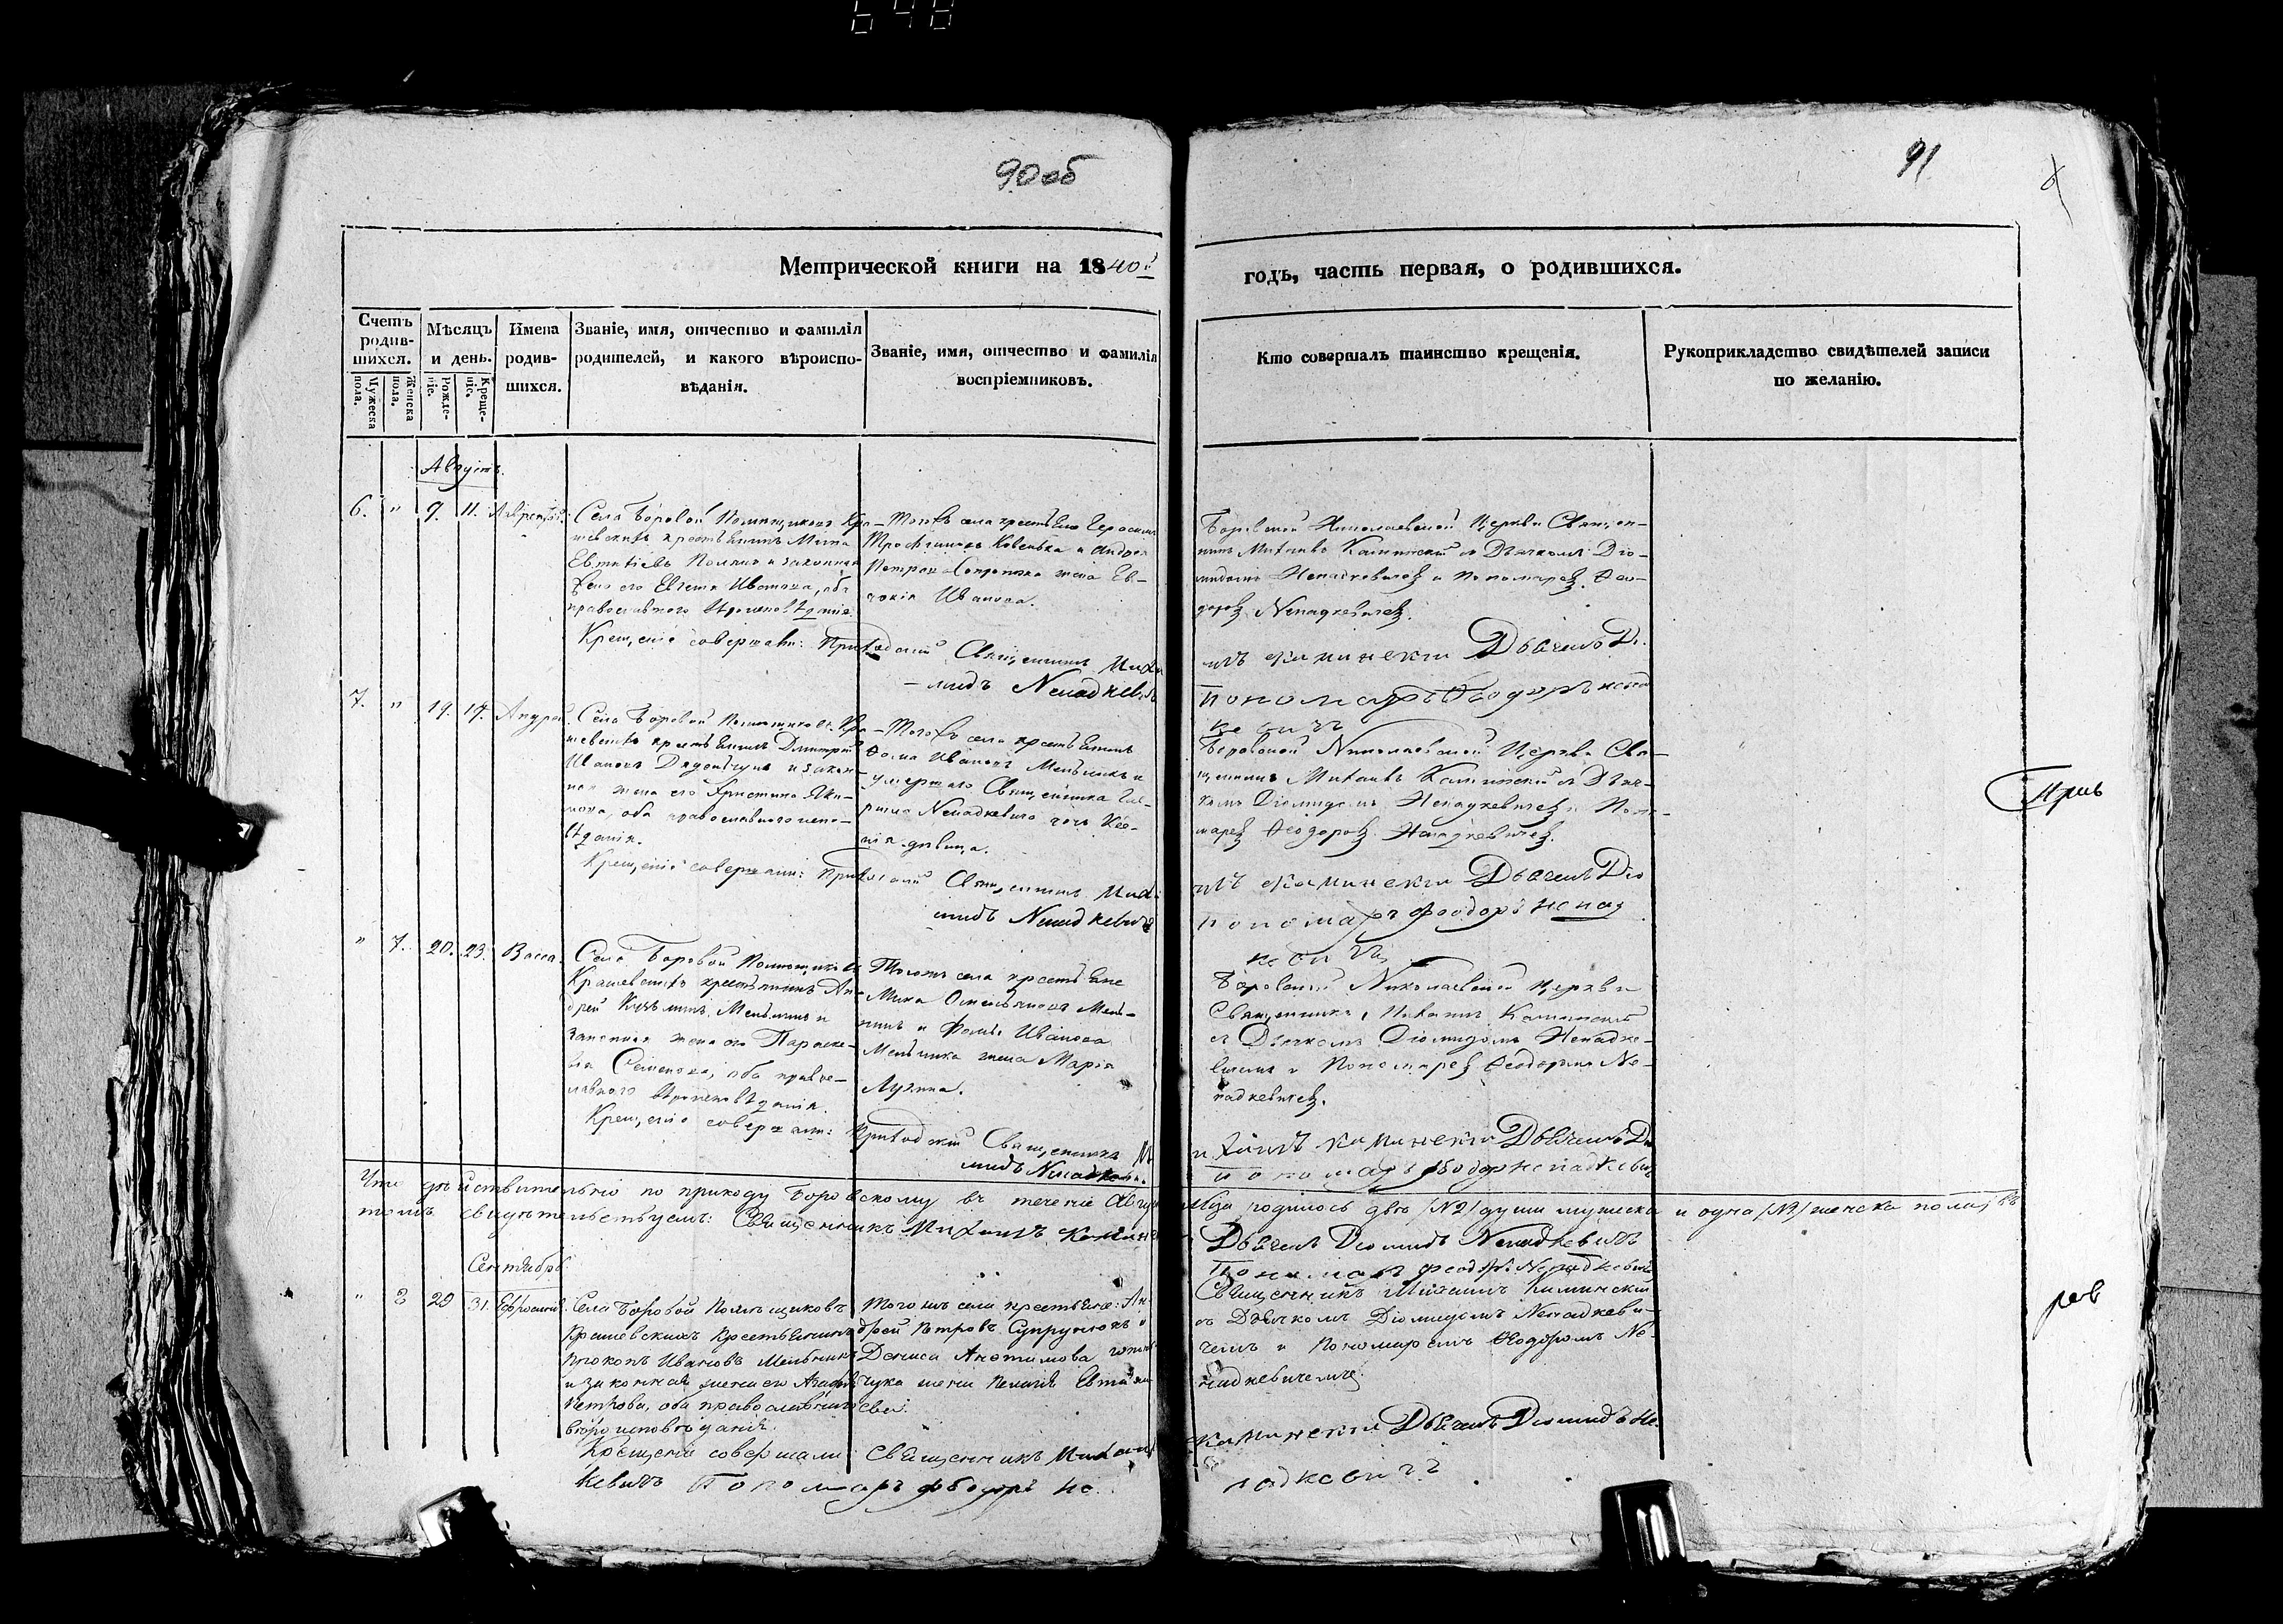 648
90об
91
Метрической книги на 1840й
годъ, часть первая, о родившихся.
Счетъ родив-шихся.
Мужеска пола.
Женска пола.
Мѣсяцъ и день.
Рожде-ніе.
Креще-ніе.
Имена родив-шихся.
Званіе, имя, отчество и фамилія
родителей, и какого вѣроиспо-
вѣданія.
Званіе, имя, отчество и фамилія
воспріемниковъ.
Кто совершалъ таинство крещенія.
Рукоприкладство свидѣтелей записи
по желанію.
Августъ
6. " 9. 11.
Села Боровой Помѣщиковъ Кра-
шевскихъ крестьянинъ Мина
и законная
жена его Иванова, оба
православного вѣроисповѣданія
Крещеніе совершали: Приходскій Священникъ Миха
Того села крестьяне
Трофимовъ и Андрея
Петрова жена Ев-
докія Иванова.
Боровской Николаевской Церкви Священ-
никъ Михаилъ Каминскій съ Дьячкомъ Діо-
мидомъ Ненадкевичемъ и Пономаремъ Фео-
доромъ Ненадкевичемъ.
илъ Каминскій Дьячекъ Ді
-мидъ Ненадкевичъ
пономарь Феодоръ Ненад
кевичъ
7. " 19. Андрей.
Села Боровой Помѣщиковъ Кра-
шевскихъ крестьянинъ Дмитрій
Ивановъ и закон-
ная жена его Христина Яки-
мова, оба православного испо-
вѣданія.
Крещеніе совершали: Приходскій Священникъ Миха
Того села крестьянинъ
Фома Ивановъ Мельникъ и
умершаго Священника
Ненадкевича дочь
девица.
Боровской Николаевской Церкви Свя-
щенникъ Михаилъ Каминскій съ Дьяч-
комъ Діомидомъ Ненадкевичемъ и Поно-
маремъ Феодоромъ Ненадкевичемъ.
илъ Каминскій Дьячекъ Діо
мидъ Ненадкевичъ
пономарь Феодоръ Ненад
кевичъ
" 7. 20. 23. Васса.
Села Боровой Помѣщиковъ
Крашевскихъ крестьянинъ Ан-
дрей Мельникъ и
законная жена его Параске-
ва Семенова, оба право-
славного вѣроисповѣданія.
Крещеніе совершали: Приходскій Священникъ М
Того села крестьяне
Мина Мель-
никъ и Фомы Иванова
Мельника жена Марія
Лукина.
Боровской Николаевской Церкви
Священникъ Михаилъ Каминскій
съ Дьячкомъ Діомидомъ Ненадке-
вичемъ и Пономаремъ Феодоромъ Не-
надкевичемъ.
ихаилъ Каминскій Дьячекъ Діо
мидъ Ненадкевичъ
пономарь Феодоръ Ненадкевичъ
Что действительно по приходу Боровскому въ теченіе Авгус
Мца родилось двѣ /№2/ души мужеска и одна /№1/ женска пола, въ
томъ свидѣтельствуемъ: Священникъ Михаилъ Каминск
Дьячекъ Діомидъ Ненадкевичъ
Пономарь Феодоръ Ненадкевичъ
Сентябрь
" 8 29 31.
Села Боровой Помѣщиковъ
Крашевскихъ Крестьянинъ
Прокопъ Ивановъ Мельникъ
и законная жена его Агафія
Петрова, оба православного
вѣроисповѣданія.
Крещеніе совершали: Священникъ Михаилъ
Того жъ села крестьяне: Ан-
дрей Петровъ Супрунюкъ и
Дениса
Священникъ Михаилъ Каминскій
съ Дьячкомъ Діомидомъ Ненадкеви-
чемъ и Пономаремъ Феодоромъ Не-
надкевичемъ.
Каминскій Дьячекъ Діомидъ Не-
над
кевичъ Пономарь Феодоръ Не
надкевичъ